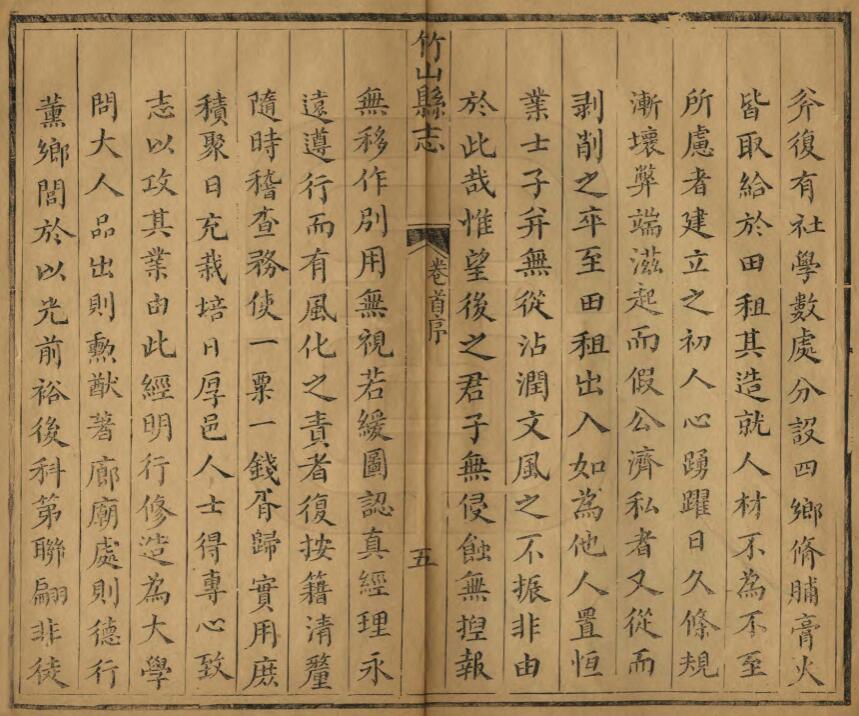 斧復有社學數處分設四鄉脩脯膏火
皆取給於田租其造就人材不為不至
所慮者建立之初人心踴躍日久條規
漸壞弊端滋起而假公濟私者又從而
剥削之卒至田租出入如為他人置恒
業士子弁無從沾潤文風之不振非由
於此哉惟望後之君子無侵蝕無揑報
竹山縣志
卷首序
五
無移作别用無視若緩圖認真經理永
遠遵行而有風化之責者復按籍清釐
隨時稽查務使一粟一錢胥歸實用庶
積聚日充栽培日厚邑人士得專心致
志以攻其業由此經明行修造為大學
問大人品出則勲猷著廊廟處則德行
薰鄉閭於以光前裕後科第聯翩非徒